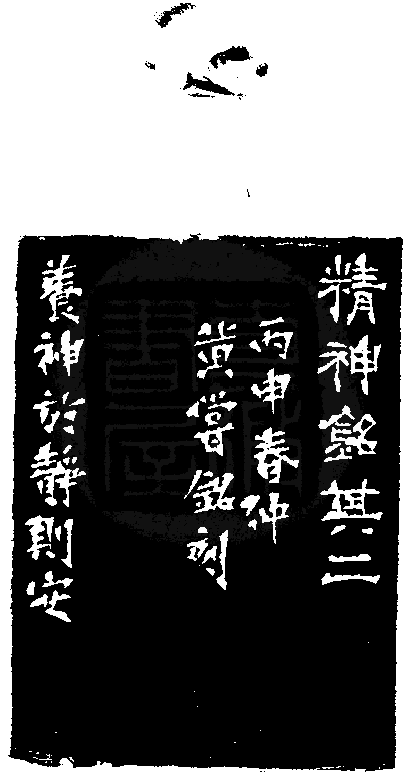 精神銘其二
丙申春仲
黄嘗銘刻
養神於靜則安